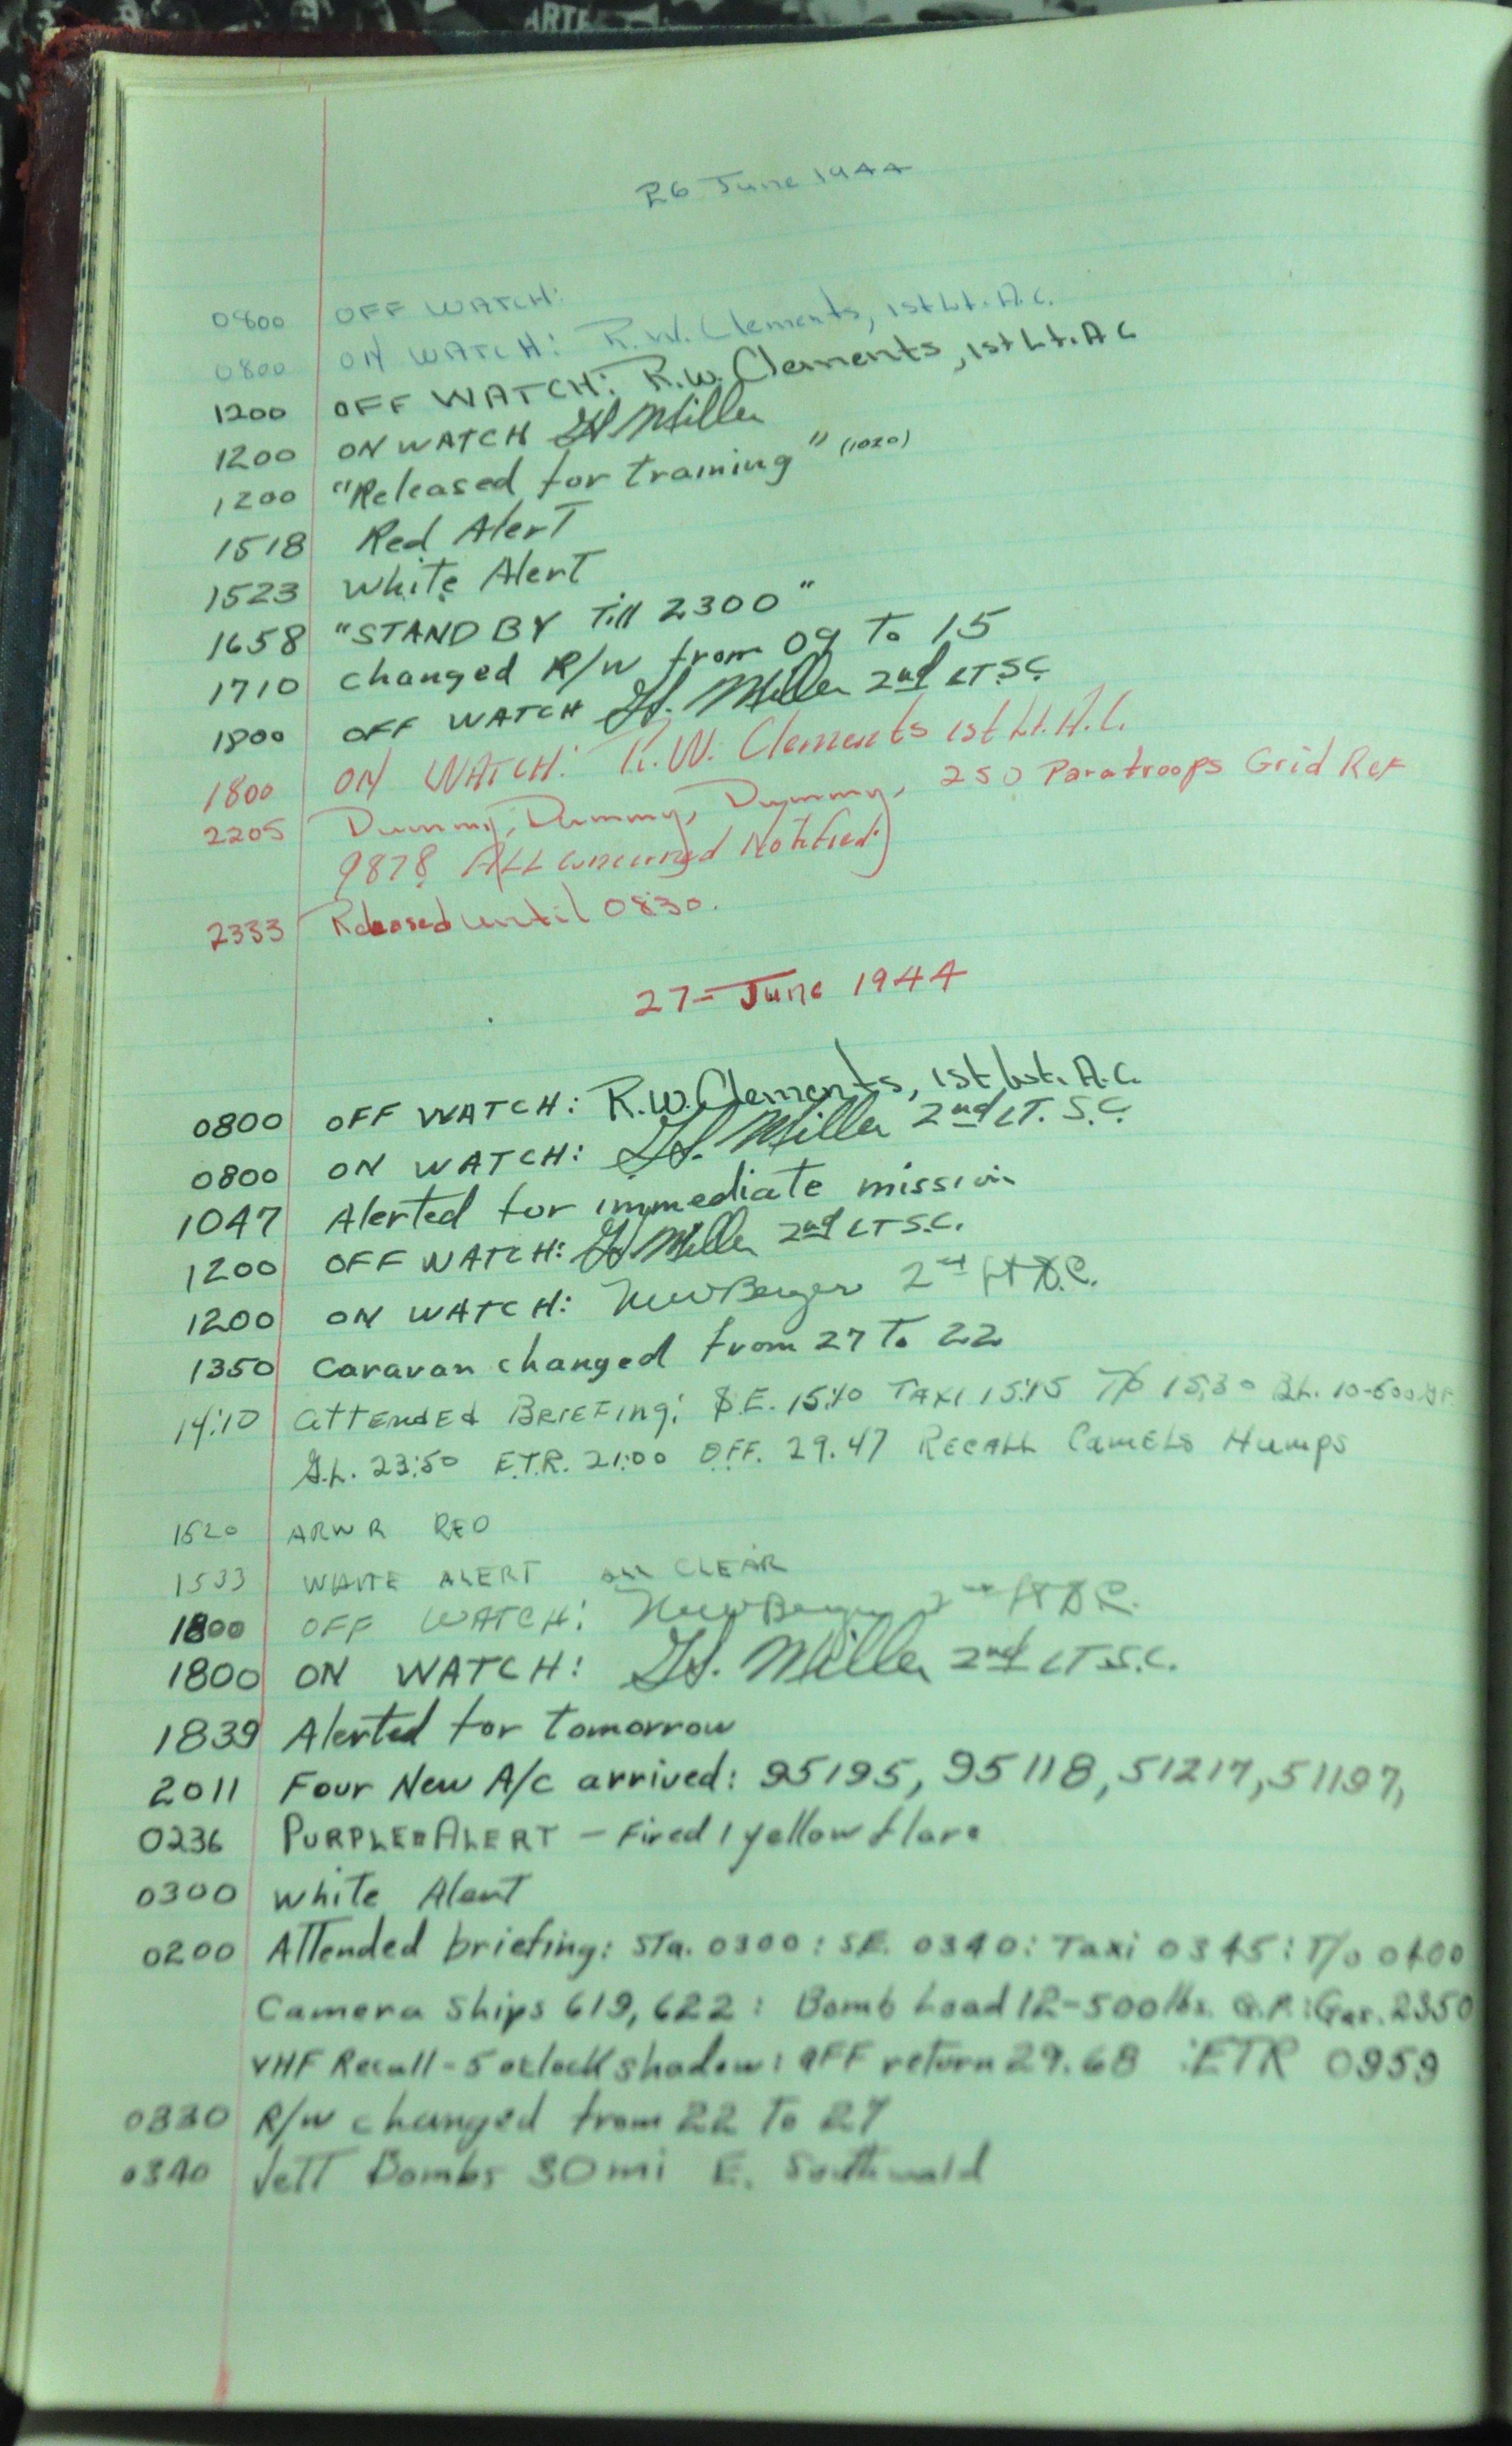 ARTE
26 June 1944
0800 OFF WATCH:
0800 ON WATCH: R.W. Clements, 1st Lt. A.C.
1200 OFF WATCH: R.W. Clements, 1st Lt. A C
1200 ON WATCH Miller
1200 "Released for training" (1020)
1518 Red Alert
1523 White Alert
1658 "STAND BY Till 2300"
1710 changed R/W from 09 To 15
1800 OFF WATCH Miller 2nd LT S.C.
1800 ON WATCH: R.W. Clements 1st Lt. A.C.
2205 Dummy, Dummy, Dummy, 250 Paratroops Grid Ref
9878 All concerned Notified
2333 Released until 0830.
27 - June 1944
0800 OFF WATCH: R.W. Clements, 1st Lt. A.C.
0800 ON WATCH: Miller 2nd LT. S.C.
1047 Alerted for immediate mission
1200 OFF WATCH: Miller 2nd LT S.C.
1200 ON WATCH: 2nd Lt
1350 Caravan changed from 27 To 22
14:10 ATTENDED BRIEFING: S.E. 15:10 TAXI 15:15 T/O 15:30 B.L. 10-500
G.L. 23:50 E.T.R. 21:00 Q.F.F. 29.47 RECALL CAMELS HUMPS
1520 ARWR RED
1533 WHITE ALERT ALL CLEAR
1800 OFF WATCH: 2nd Lt
1800 ON WATCH: Miller 2nd LT S.C.
1839 Alerted for tomorrow
2011 Four New A/C arrived: 95195, 95118, 51217, 51197,
0236 PURPLE ALERT - Fired 1 yellow flare
0300 White Alert
0200 Attended briefing: Sta. 0300: S.E. 0340: Taxi 0345: T/o 0400
Camera Ships 619, 622: Bomb Load 12-500 lbs. G.P.: Gas. 2350
VHF Recall - 5 oclock shadow: QFF return 29.68 :ETR 0959
0330 R/W changed from 22 To 27
0340 Jett Bombs 30 mi E. Southwold